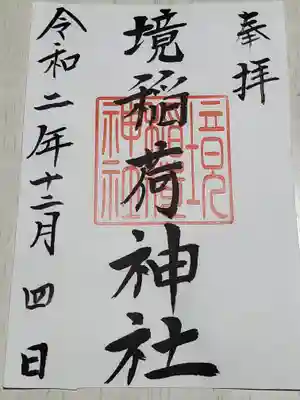 奉拝
境稲荷神社
境稲荷神社
令和二年十二月四日